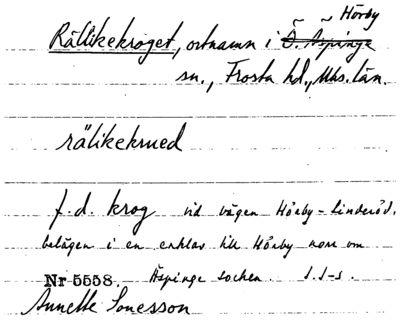 Hörby
Rällikekroget, ortnamn i Ö. Äspinge
sn., Frosta hd., Mhs. län.
rälikekrued
f.d. krog vid vägen Hörby-Linderöd,
belägen i en enklav till Hörby som om
Nr 5558. Äspinge socken. I.I-s.
Annette Sonesson